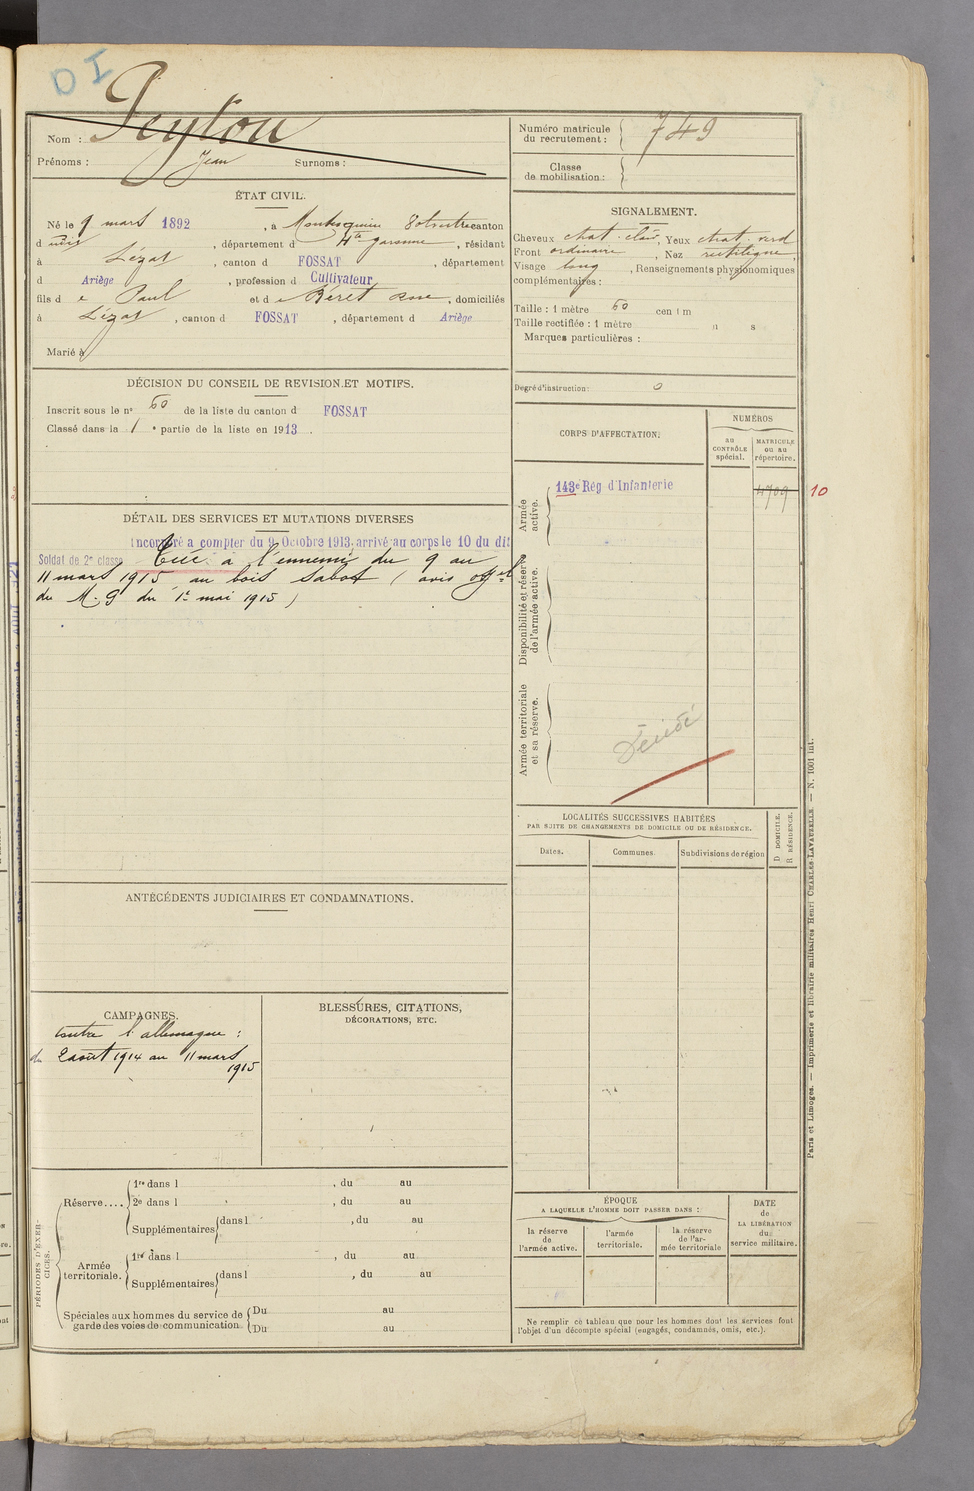 D I
Nom : Peylou
Prénoms : Jean Surnoms :
ÉTAT CIVIL.
Né le 9 mars 1892, à Montesquieu Volvestre canton
d udit, département d Hte garonne, résidant
à Lézat, canton d FOSSAT, département
d Ariège, profession d Cultivateur
fils d e Paul et d e Béret Rose, domiciliés
à Lézat, canton d FOSSAT, département d Ariège
Marié à
DÉCISION DU CONSEIL DE REVISION ET MOTIFS.
Inscrit sous le n° 60 de la liste du canton d FOSSAT
Classé dans la 1 e partie de la liste en 1913.
DÉTAIL DES SERVICES ET MUTATIONS DIVERSES
Incorporé a compter du 9 Octobre 1913, arrivé au corps le 10 du dit
Soldat de 2e classe Tué à l'ennemi du 9 au
11 mars 1915 au bois Sabot (avis offel
du M. G du 1er mai 1915)
ANTÉCÉDENTS JUDICIAIRES ET CONDAMNATIONS.
CAMPAGNES.
Contre l'allemagne :
du 2 aout 1914 au 11 mars
1915
BLESSURES, CITATIONS,
DÉCORATIONS, ETC.
PÉRIODES D'EXERCICES.
Réserve.... 1re dans l , du au
2e dans l , du au
Supplémentaires dans l , du au
Armée territoriale. 1re dans l , du au
Supplémentaires dans l , du au
Spéciales aux hommes du service de garde des voies de communication Du au
Du au
Numéro matricule du recrutement : 749
Classe de mobilisation :
SIGNALEMENT.
Cheveux chat. clair, Yeux chat. verd
Front ordinaire, Nez rectiligne,
Visage long, Renseignements physionomiques
complémentaires :
Taille : 1 mètre 60 centim
Taille rectifiée : 1 mètre
Marques particulières :
Degré d'instruction : 0
CORPS D'AFFECTATION.
NUMÉROS
au CONTRÔLE spécial.
MATRICULE ou au répertoire.
Armée active.
143e Rég d'Infanterie 4709 10
Disponibilité et réserve de l'armée active.
Armée territoriale et sa réserve.
LOCALITÉS SUCCESSIVES HABITÉES
PAR SUITE DE CHANGEMENTS DE DOMICILE OU DE RÉSIDENCE.
Dates. Communes. Subdivisions de région D DOMICILE. R RÉSIDENCE.
ÉPOQUE
A LAQUELLE L'HOMME DOIT PASSER DANS :
la réserve de l'armée active.
l'armée territoriale.
la réserve de l'armée territoriale
DATE de LA LIBÉRATION du service militaire.
Ne remplir ce tableau que pour les hommes dont les services font
l'objet d'un décompte spécial (engagés, condamnés, omis, etc.).
Paris et Limoges. — Imprimerie et librairie militaires Henri CHARLES LAVAUZELLE. — N. 1001 int.